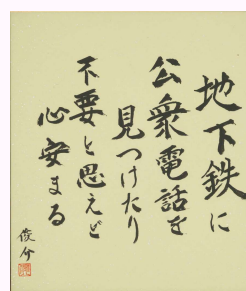 地下鉄に
公衆電話を
見つけたり
不要と思えど
心安まる
俊介